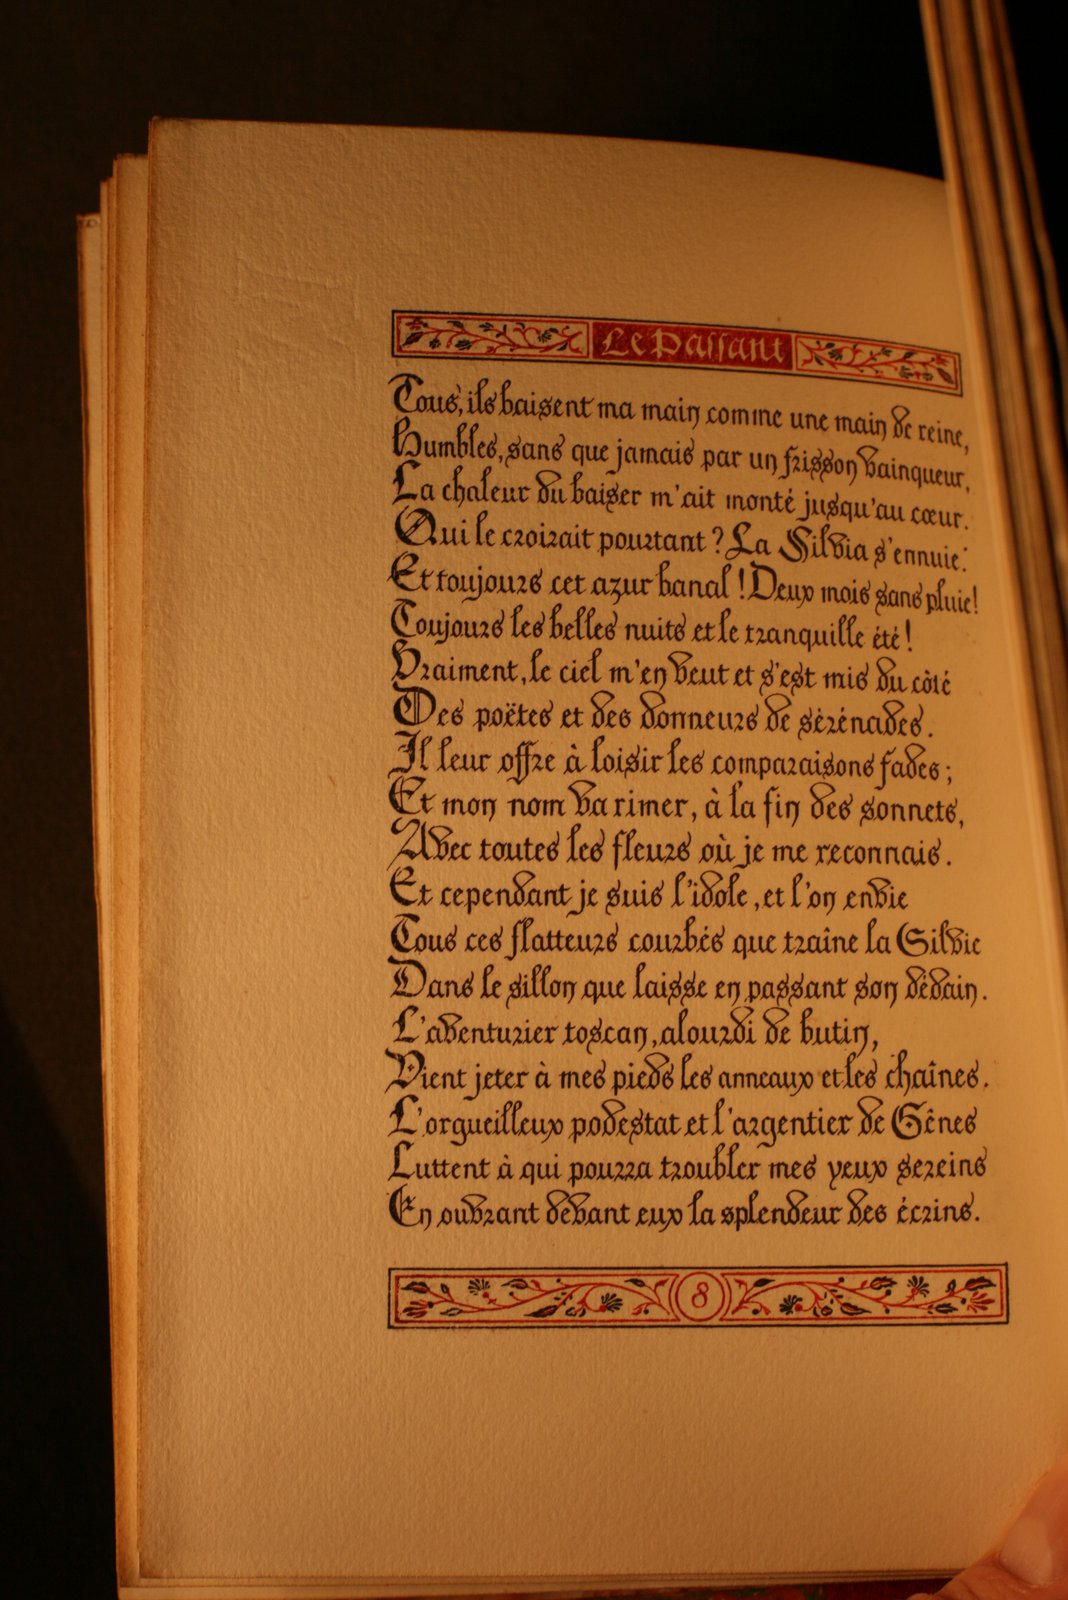 Le Passant
Tous, ils baisent ma main comme une main de reine,
Humbles, sans que jamais par un frisson vainqueur,
La chaleur du baiser m'ait monté jusqu'au cœur.
Qui le croirait pourtant ? La Silvia s'ennuie :
Et toujours cet azur banal ! Deux mois sans pluie !
Toujours les belles nuits et le tranquille été !
Vraiment, le ciel m'en veut et s'est mis du côté
Des poëtes et des donneurs de sérénades.
Il leur offre à loisir les comparaisons fades ;
Et mon nom va rimer, à la fin des sonnets,
Avec toutes les fleurs où je me reconnais.
Et cependant je suis l'idole, et l'on envie
Tous ces flatteurs courbés que traîne la Silvie
Dans le sillon que laisse en passant son dédain.
L'aventurier toscan, alourdi de butin,
Vient jeter à mes pieds les anneaux et les chaînes.
L'orgueilleux podestat et l'argentier de Gênes
Luttent à qui pourra troubler mes yeux sereins
En ouvrant devant eux la splendeur des écrins.
8